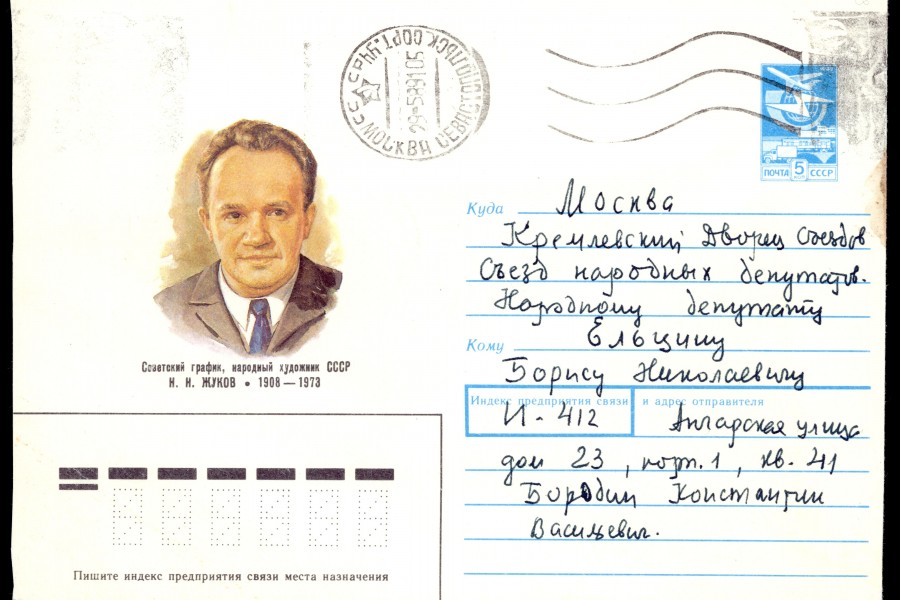 СССР МОСКВА СЕВАСТОПОЛЬСК СОРТ. УЧ
ПОЧТА 5 КОП СССР
Куда Москва
Кремлевский Дворец Съездов
Съезд народных депутатов.
Народному депутату
Кому Ельцину
Борису Николаевичу
Индекс предприятия связи и адрес отправителя
И-412 Ангарская улица
дом 23, корп. 1, кв. 41
Бородин Константин
Васильевич.
Советский график, народный художник СССР
Н. Н. ЖУКОВ • 1908—1973
Пишите индекс предприятия связи места назначения